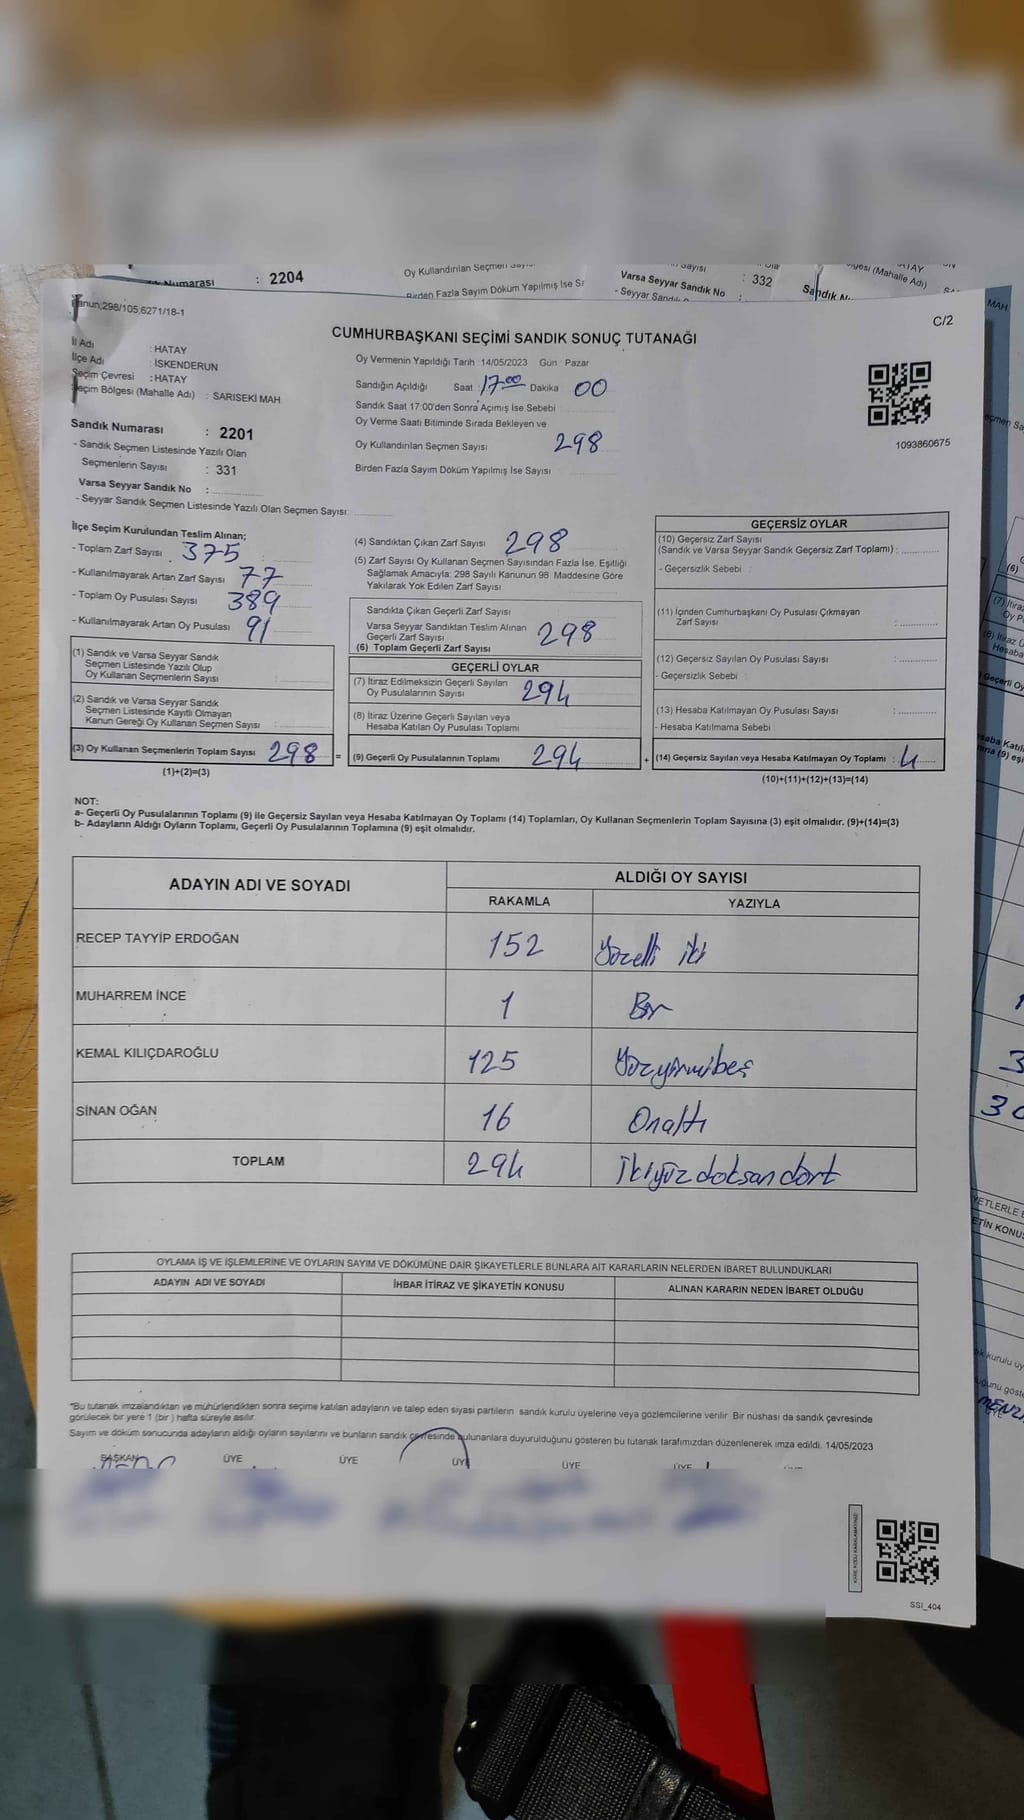 Numarası : 2204
Oy Kullandırılan Seçmen Sayısı
Birden Fazla Sayım Döküm Yapılmış İse
Sayısı : 332
Varsa Seyyar Sandık No
- Seyyar
Sandık
(Mahalle Adı)
MAH
Kanun;298/105;6271/18-1
C/2
CUMHURBAŞKANI SEÇİMİ SANDIK SONUÇ TUTANAĞI
İl Adı : HATAY
İlçe Adı : İSKENDERUN
Seçim Çevresi : HATAY
Seçim Bölgesi (Mahalle Adı) : SARISEKİ MAH
Sandık Numarası : 2201
- Sandık Seçmen Listesinde Yazılı Olan
Seçmenlerin Sayısı : 331
Varsa Seyyar Sandık No :
- Seyyar Sandık Seçmen Listesinde Yazılı Olan Seçmen Sayısı:
Oy Vermenin Yapıldığı Tarih : 14/05/2023 Gün : Pazar
Sandığın Açıldığı Saat : 17.00 Dakika 00
Sandık Saat 17:00'den Sonra Açımış İse Sebebi
Oy Verme Saati Bitiminde Sırada Bekleyen ve
Oy Kullandırılan Seçmen Sayısı 298
Birden Fazla Sayım Döküm Yapılmış İse Sayısı
1093860675
İlçe Seçim Kurulundan Teslim Alınan;
- Toplam Zarf Sayısı 375
- Kullanılmayarak Artan Zarf Sayısı 77
- Toplam Oy Pusulası Sayısı 389
- Kullanılmayarak Artan Oy Pusulası 91
(1) Sandık ve Varsa Seyyar Sandık
Seçmen Listesinde Yazılı Olup
Oy Kullanan Seçmenlerin Sayısı :
(2) Sandık ve Varsa Seyyar Sandık
Seçmen Listesinde Kayıtlı Olmayan
Kanun Gereği Oy Kullanan Seçmen Sayısı :
(3) Oy Kullanan Seçmenlerin Toplam Sayısı 298 =
(1)+(2)=(3)
(4) Sandıktan Çıkan Zarf Sayısı 298
(5) Zarf Sayısı Oy Kullanan Seçmen Sayısından Fazla İse, Eşitliği
Sağlamak Amacıyla; 298 Sayılı Kanunun 98. Maddesine Göre
Yakılarak Yok Edilen Zarf Sayısı
Sandıkta Çıkan Geçerli Zarf Sayısı :
Varsa Seyyar Sandıktan Teslim Alınan
Geçerli Zarf Sayısı
(6) Toplam Geçerli Zarf Sayısı 298
GEÇERLİ OYLAR
(7) İtiraz Edilmeksizin Geçerli Sayılan
Oy Pusulalarının Sayısı 294
(8) İtiraz Üzerine Geçerli Sayılan veya
Hesaba Katılan Oy Pusulaları Toplamı
(9) Geçerli Oy Pusulalarının Toplamı 294 +
GEÇERSİZ OYLAR
(10) Geçersiz Zarf Sayısı
(Sandık ve Varsa Seyyar Sandık Geçersiz Zarf Toplamı) :
- Geçersizlik Sebebi :
(11) İçinden Cumhurbaşkanı Oy Pusulası Çıkmayan
Zarf Sayısı :
(12) Geçersiz Sayılan Oy Pusulası Sayısı :
- Geçersizlik Sebebi :
(13) Hesaba Katılmayan Oy Pusulası Sayısı :
- Hesaba Katılmama Sebebi
(14) Geçersiz Sayılan veya Hesaba Katılmayan Oy Toplamı : 4
(10)+(11)+(12)+(13)=(14)
NOT:
a- Geçerli Oy Pusulalarının Toplamı (9) ile Geçersiz Sayılan veya Hesaba Katılmayan Oy Toplamı (14) Toplamları, Oy Kullanan Seçmenlerin Toplam Sayısına (3) eşit olmalıdır. (9)+(14)=(3)
b- Adayların Aldığı Oyların Toplamı, Geçerli Oy Pusulalarının Toplamına (9) eşit olmalıdır.
ADAYIN ADI VE SOYADI ALDIĞI OY SAYISI
RAKAMLA YAZIYLA
RECEP TAYYİP ERDOĞAN 152 Yüzelli iki
MUHARREM İNCE 1 Bir
KEMAL KILIÇDAROĞLU 125 Yüzyirmibeş
SİNAN OĞAN 16 Onaltı
TOPLAM 294 İkiyüzdoksan dört
OYLAMA İŞ VE İŞLEMLERİNE VE OYLARIN SAYIM VE DÖKÜMÜNE DAİR ŞİKAYETLERLE BUNLARA AİT KARARLARIN NELERDEN İBARET BULUNDUKLARI
ADAYIN ADI VE SOYADI İHBAR İTİRAZ VE ŞİKAYETİN KONUSU ALINAN KARARIN NEDEN İBARET OLDUĞU
*Bu tutanak imzalandıktan ve mühürlendikten sonra seçime katılan adayların ve talep eden siyasi partilerin sandık kurulu üyelerine veya gözlemcilerine verilir. Bir nüshası da sandık çevresinde
görülecek bir yere 1 (bir ) hafta süreyle asılır.
Sayım ve döküm sonucunda adayların aldığı oyların sayılarını ve bunların sandık çevresinde bulunanlara duyurulduğunu gösteren bu tutanak tarafımızdan düzenlenerek imza edildi. 14/05/2023
BAŞKAN ÜYE ÜYE ÜYE ÜYE ÜYE
SSI_404